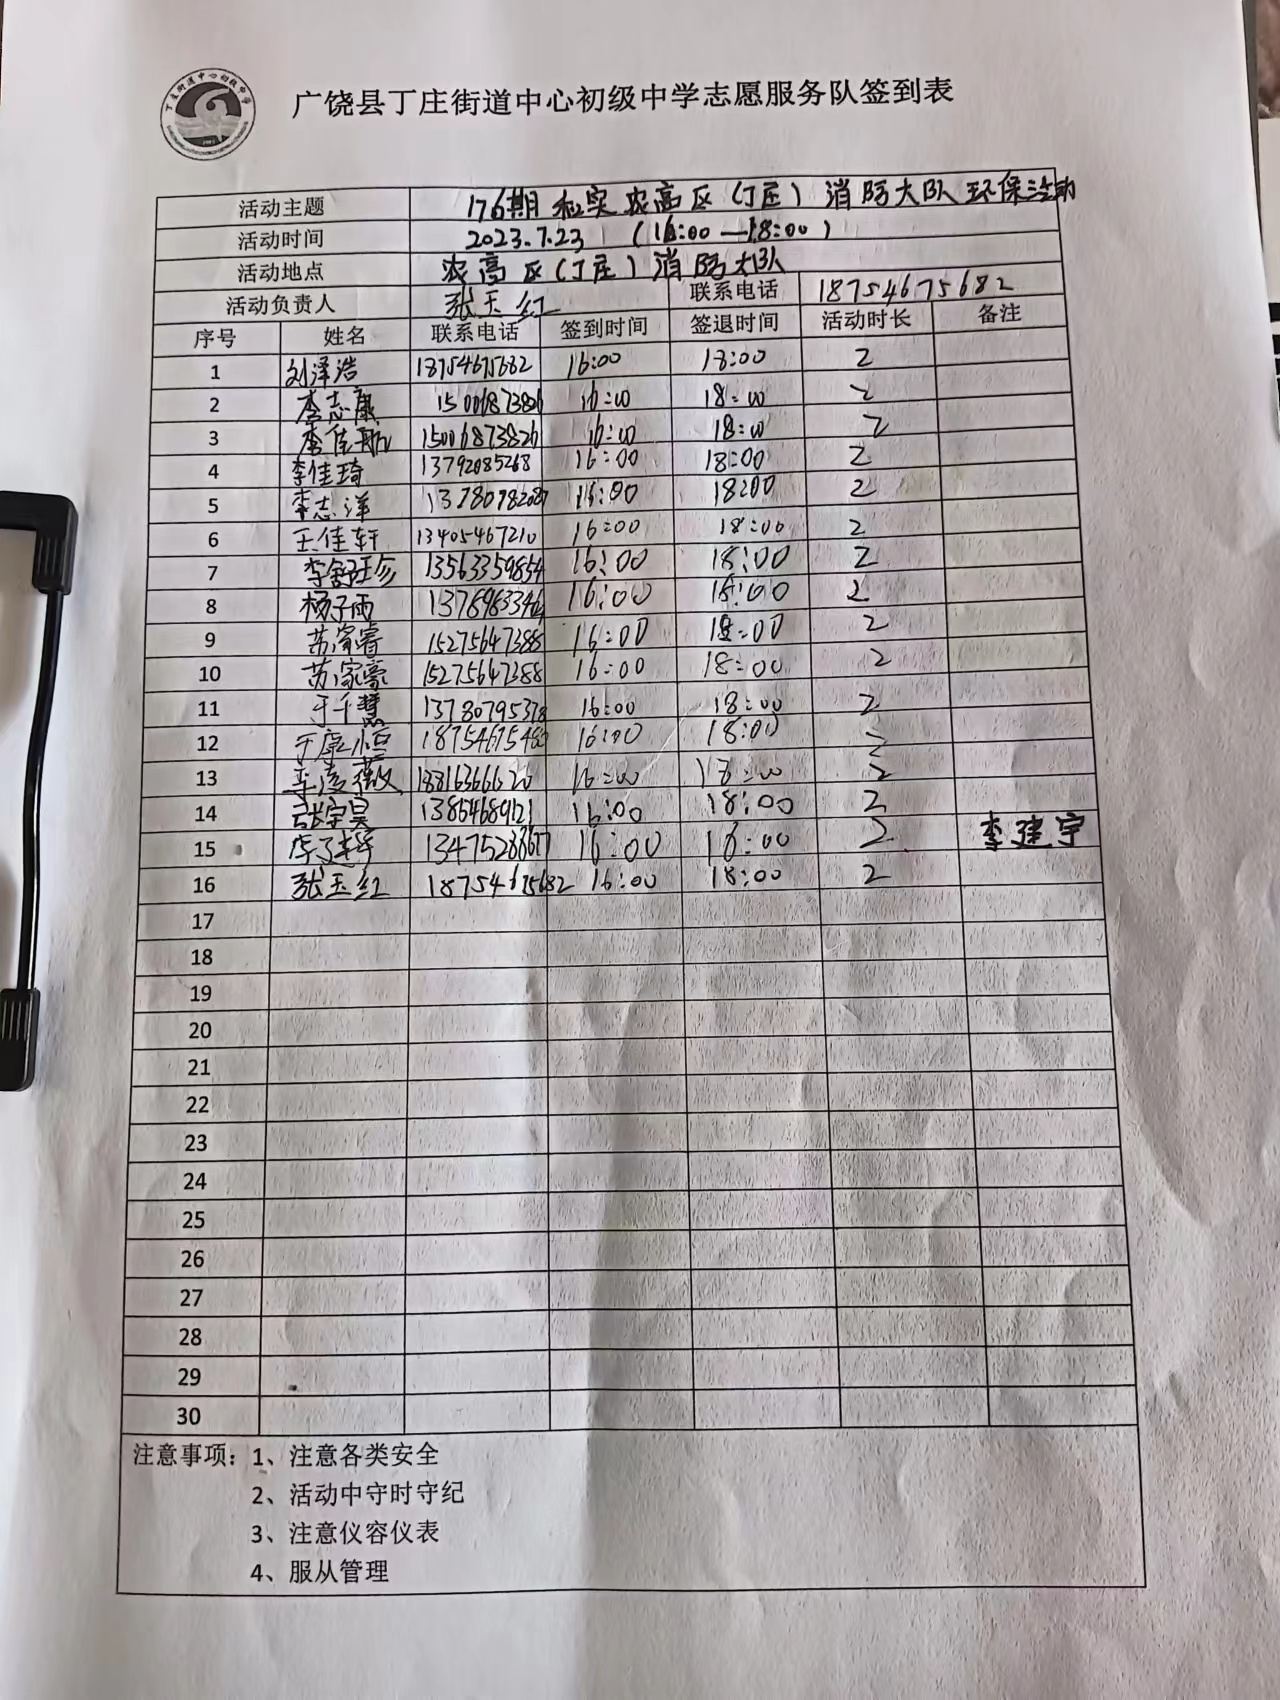 广饶县丁庄街道中心初级中学志愿服务队签到表
活动主题 176期 和实农高区(丁庄)消防大队环保活动
活动时间 2023.7.23 (16:00—18:00)
活动地点 农高区(丁庄)消防大队
活动负责人 张玉红 联系电话 18754675682
序号 姓名 联系电话 签到时间 签退时间 活动时长 备注
1 刘泽浩 18754675682 16:00 18:00 2
2 李志康 15006873826 16:00 18:00 2
3 李佳航 15006873826 16:00 18:00 2
4 李佳琦 13792085268 16:00 18:00 2
5 李志洋 16:00 18:00 2
6 王佳轩 13405467210 16:00 18:00 2
7 13563359854 16:00 18:00 2
8 杨子雨 16:00 18:00 2
9 苏家睿 15275647388 16:00 18:00 2
10 苏家豪 15275647388 16:00 18:00 2
11 于千慧 16:00 18:00 2
12 于康恒 16:00 18:00 2
13 李凌薇 16:00 18:00 2
14 张宇昊 16:00 18:00 2
15 李建宇 16:00 18:00 2 李建宇
16 张玉红 18754675682 16:00 18:00 2
17
18
19
20
21
22
23
24
25
26
27
28
29
30
注意事项：1、注意各类安全
2、活动中守时守纪
3、注意仪容仪表
4、服从管理